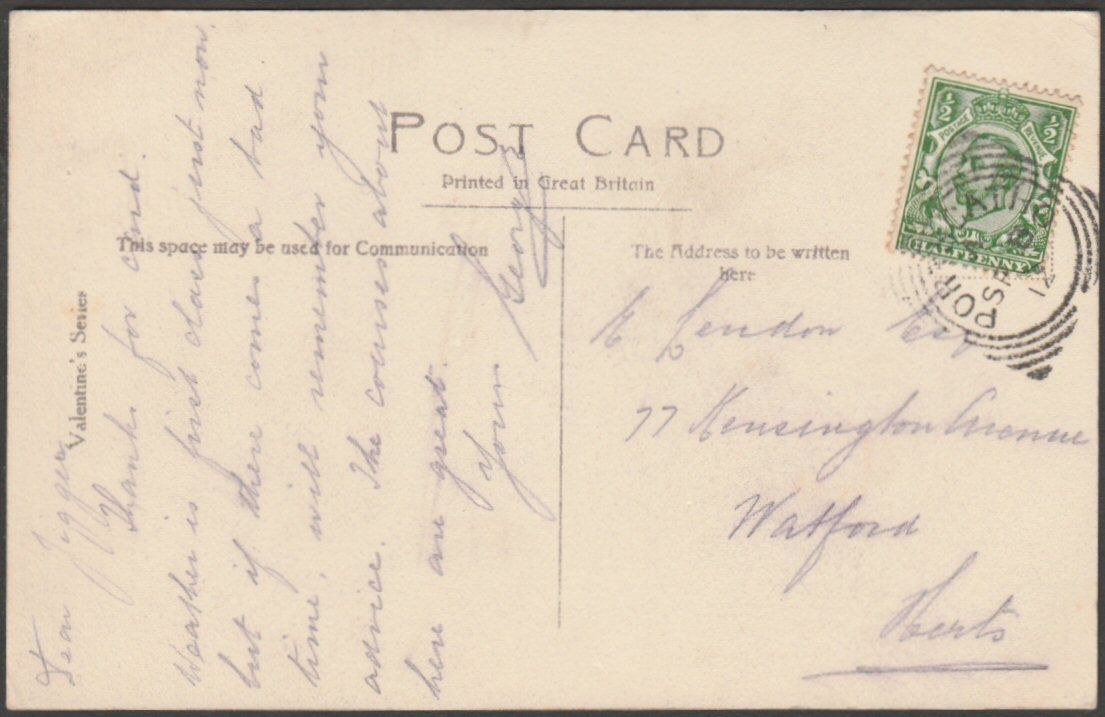 POST CARD
Printed in Great Britain
This space may be used for Communication
The Address to be written
here
Valentine's Series
Dear
Thanks for card.
Weather is first class just now.
but if there comes a bad
time, will remember your
advice. The courses about
here are great.
Yours
George
E London Esq
77 Kensington Avenue
Watford
Herts
½ ½
POSTAGE REVENUE
HALFPENNY
12